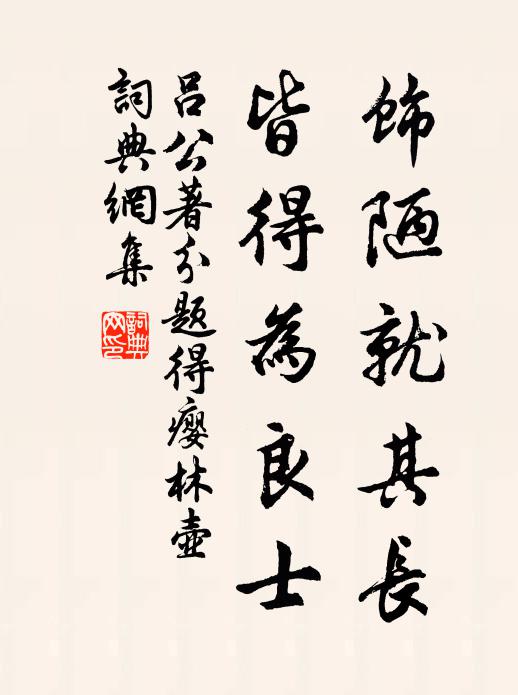 飾陋就其長
皆得為良士
呂公著分題得癭林壺
詞典網集
詞典網印